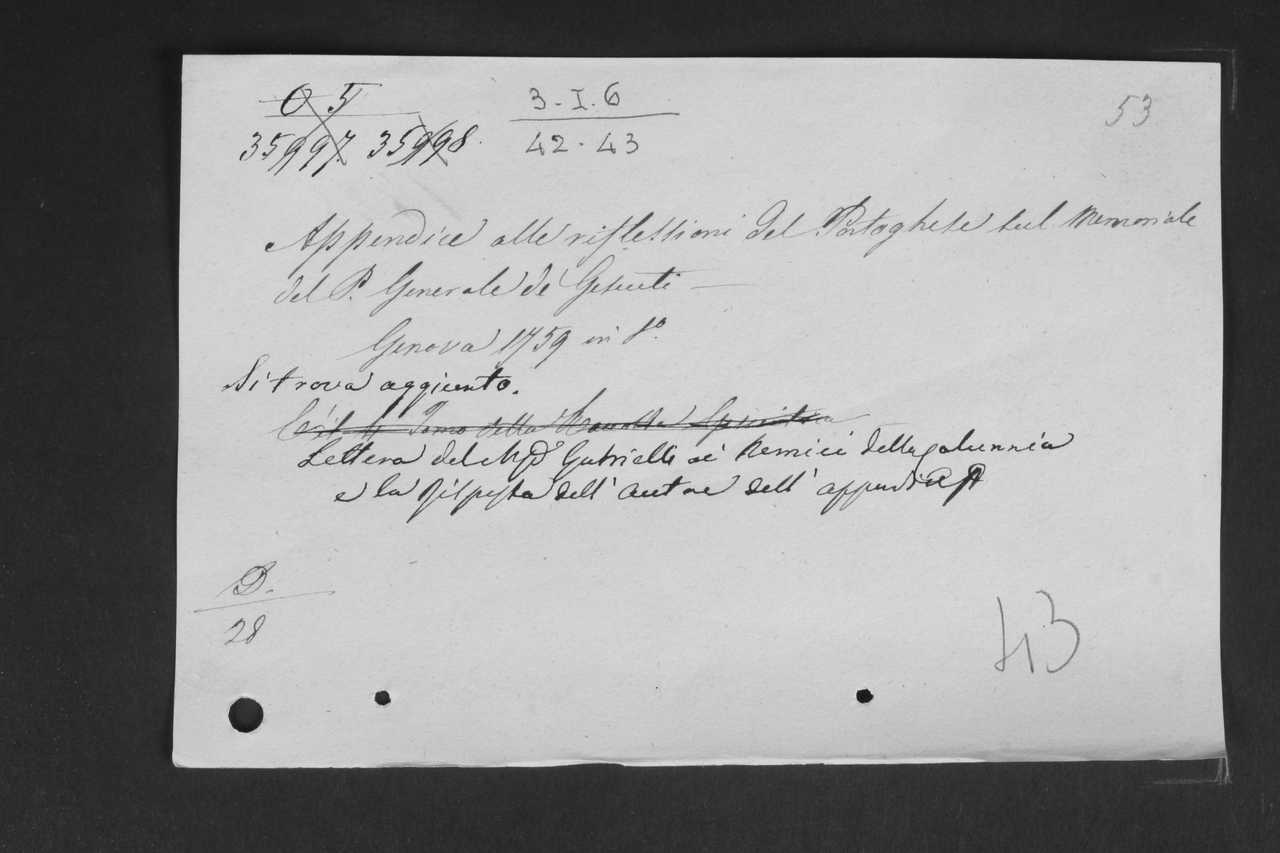 O 5
35997. 35998.
3-I.6
42-43
53
Appendice alle riflessioni del Portoghese sul memoriale
del P. Generale de' Gesuiti —
Genova 1759 in 8°.
Si trova aggiunto.
Tomo della Raccolta
Lettera del Gabrielli ai Nemici della calunnia
e la Risposta dell' autore dell' appendice
D.
28
43